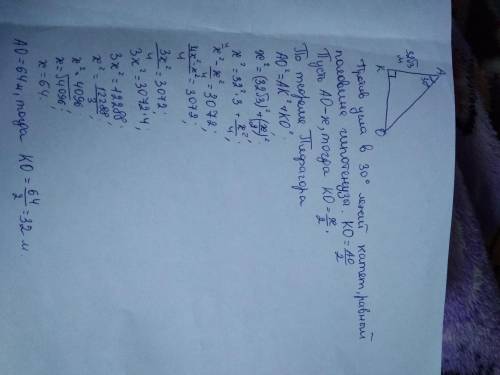 32√3
м
A
30°
K
O
Против угла в 30° лежит катет, равный
половине гипотенузы. KO = AO/2
Пусть AO - x, тогда KO = x/2.
По теореме Пифагора
AO² = AK² + KO²
x² = (32√3)² + (x/2)²;
x² = 32²·3 + x²/4;
x² - x²/4 = 3072;
4x²-x²/4 = 3072;
3x²/4 = 3072;
3x² = 3072·4;
3x² = 12288;
x² = 12288/3;
x² = 4096
x = √4096;
x = 64;
AO = 64 м, тогда KO = 64/2 = 32 м.